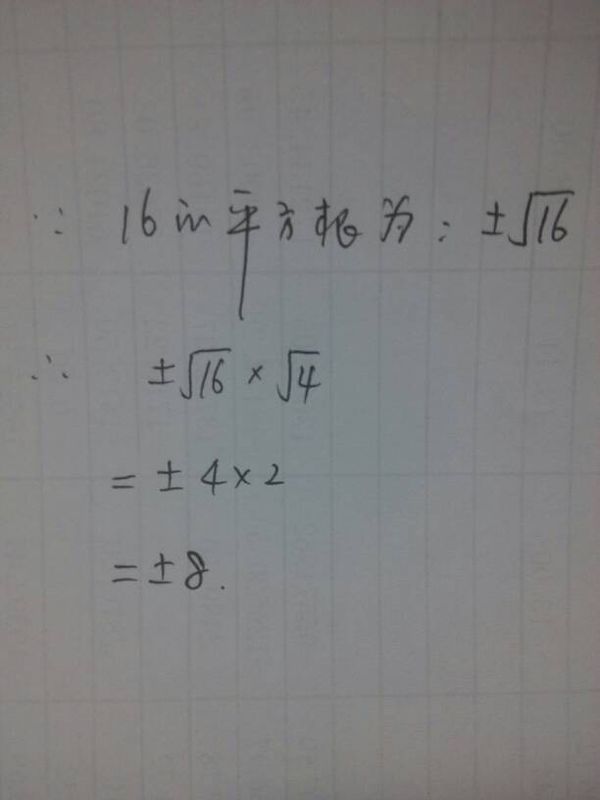 ∵ 16的平方根为: ±√16
∴ ±√16 × √4
= ± 4 × 2
= ± 8.